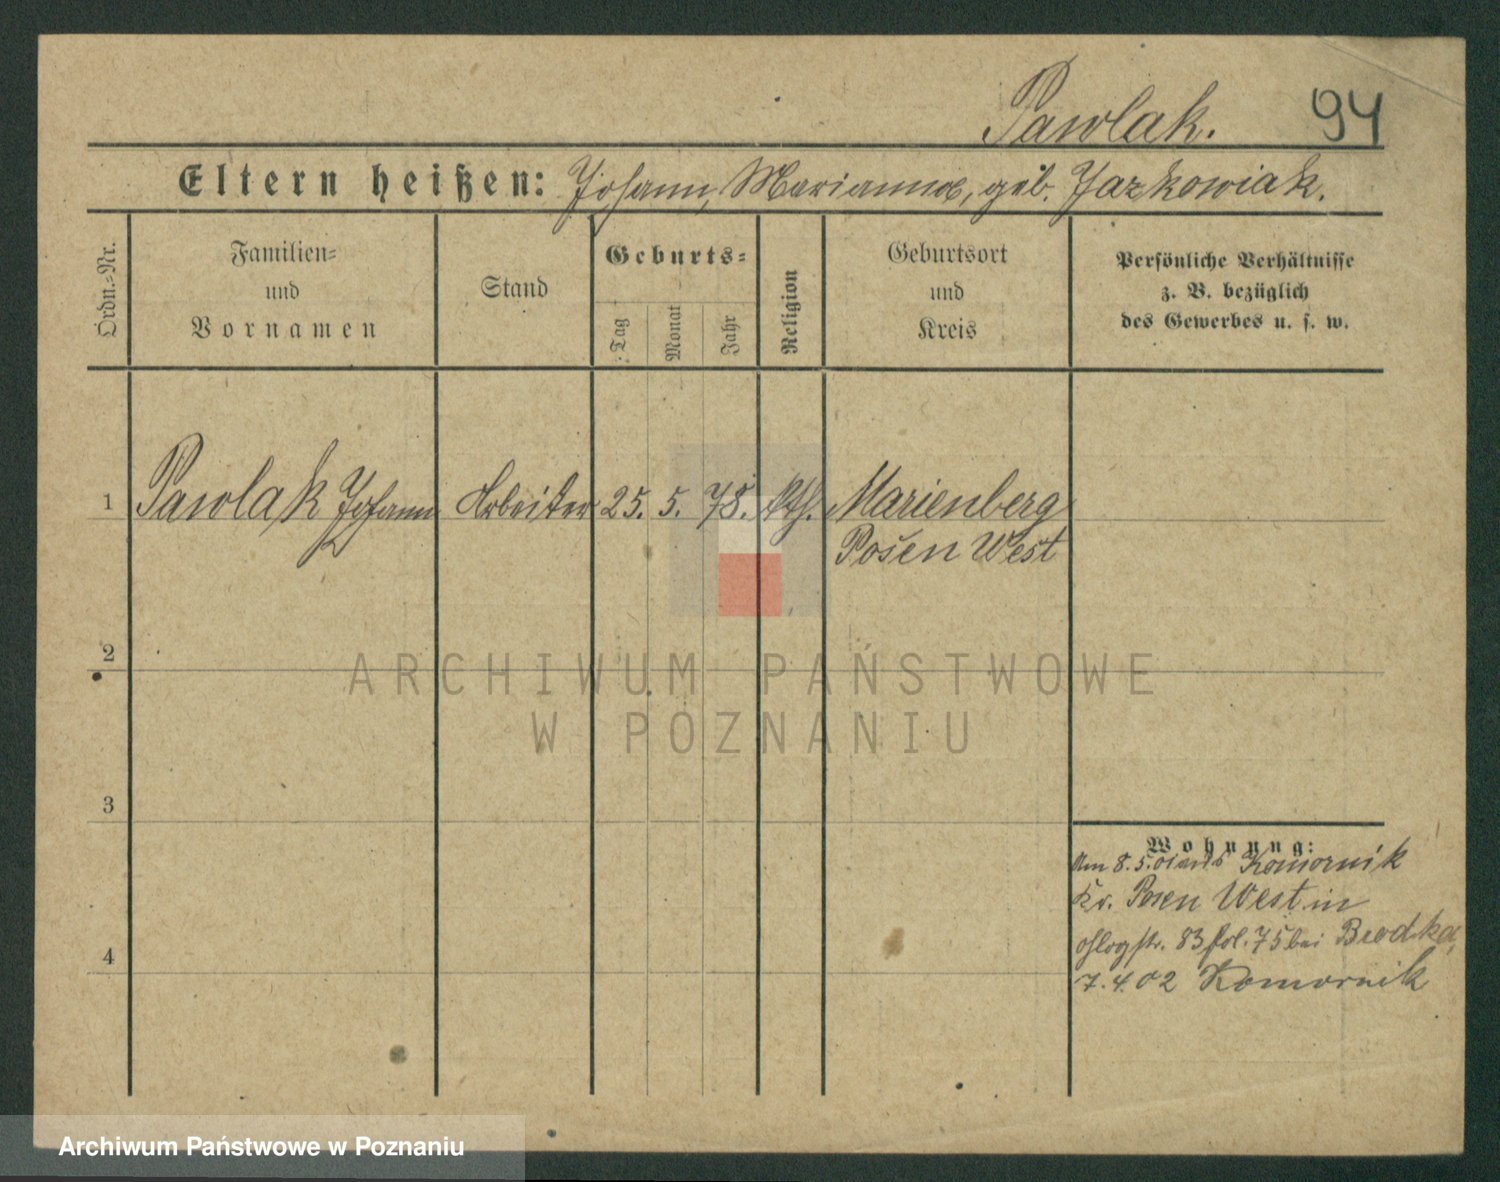 Pawlak. 94
Eltern heißen: Johann, Marianna, geb. Jazkowiak.
Ordn.-Nr.
Familien-
und
Vornamen
Stand
Geburts-
Tag
Monat
Jahr
Religion
Geburtsort
und
Kreis
Persönliche Verhältnisse
z. B. bezüglich
des Gewerbes u. s. w.
1 Pawlak Johann Arbeiter 25. 5. 78. kth. Marienberg
Posen West
2
ARCHIWUM PAŃSTWOWE
W POZNANIU
3
Wohnung:
Am 8.5.01 aus Komornik
Kr. Posen West in
83 fol. 75 bei Brodka,
4
7.4.02 Komornik
Archiwum Państwowe w Poznaniu